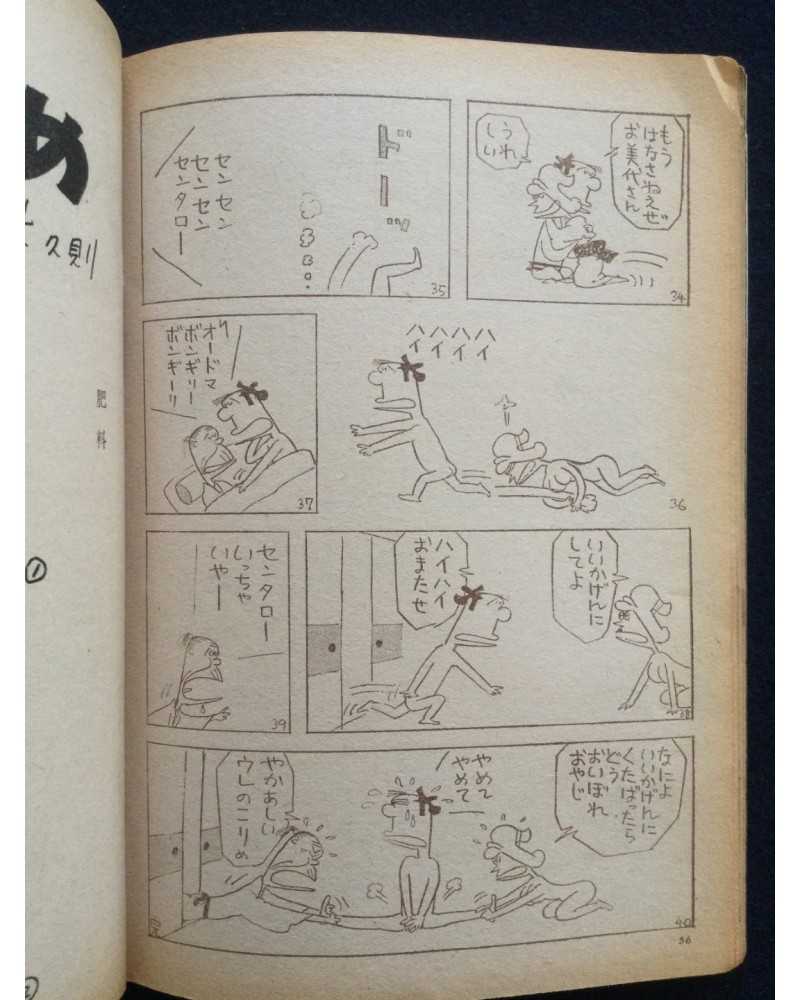 もう
はなさねえぜ
お美代さん
うれ
しい
34
ドーッ
センセン
センセン
センタロー
35
ハハハハ
イイイイ
36
オードマ
ボンギリー
ボンギーリ
37
いいかげんに
してよ
ハイハイ
おまたせ
38
センタロー
いっちゃ
いやー
39
なによ
いいかげんに
くたばったら
どう
おいぼれ
おやじ
やめて
やめて
やかあしい
ウレのこりめ
40
56
め
久則
肥料
①
②